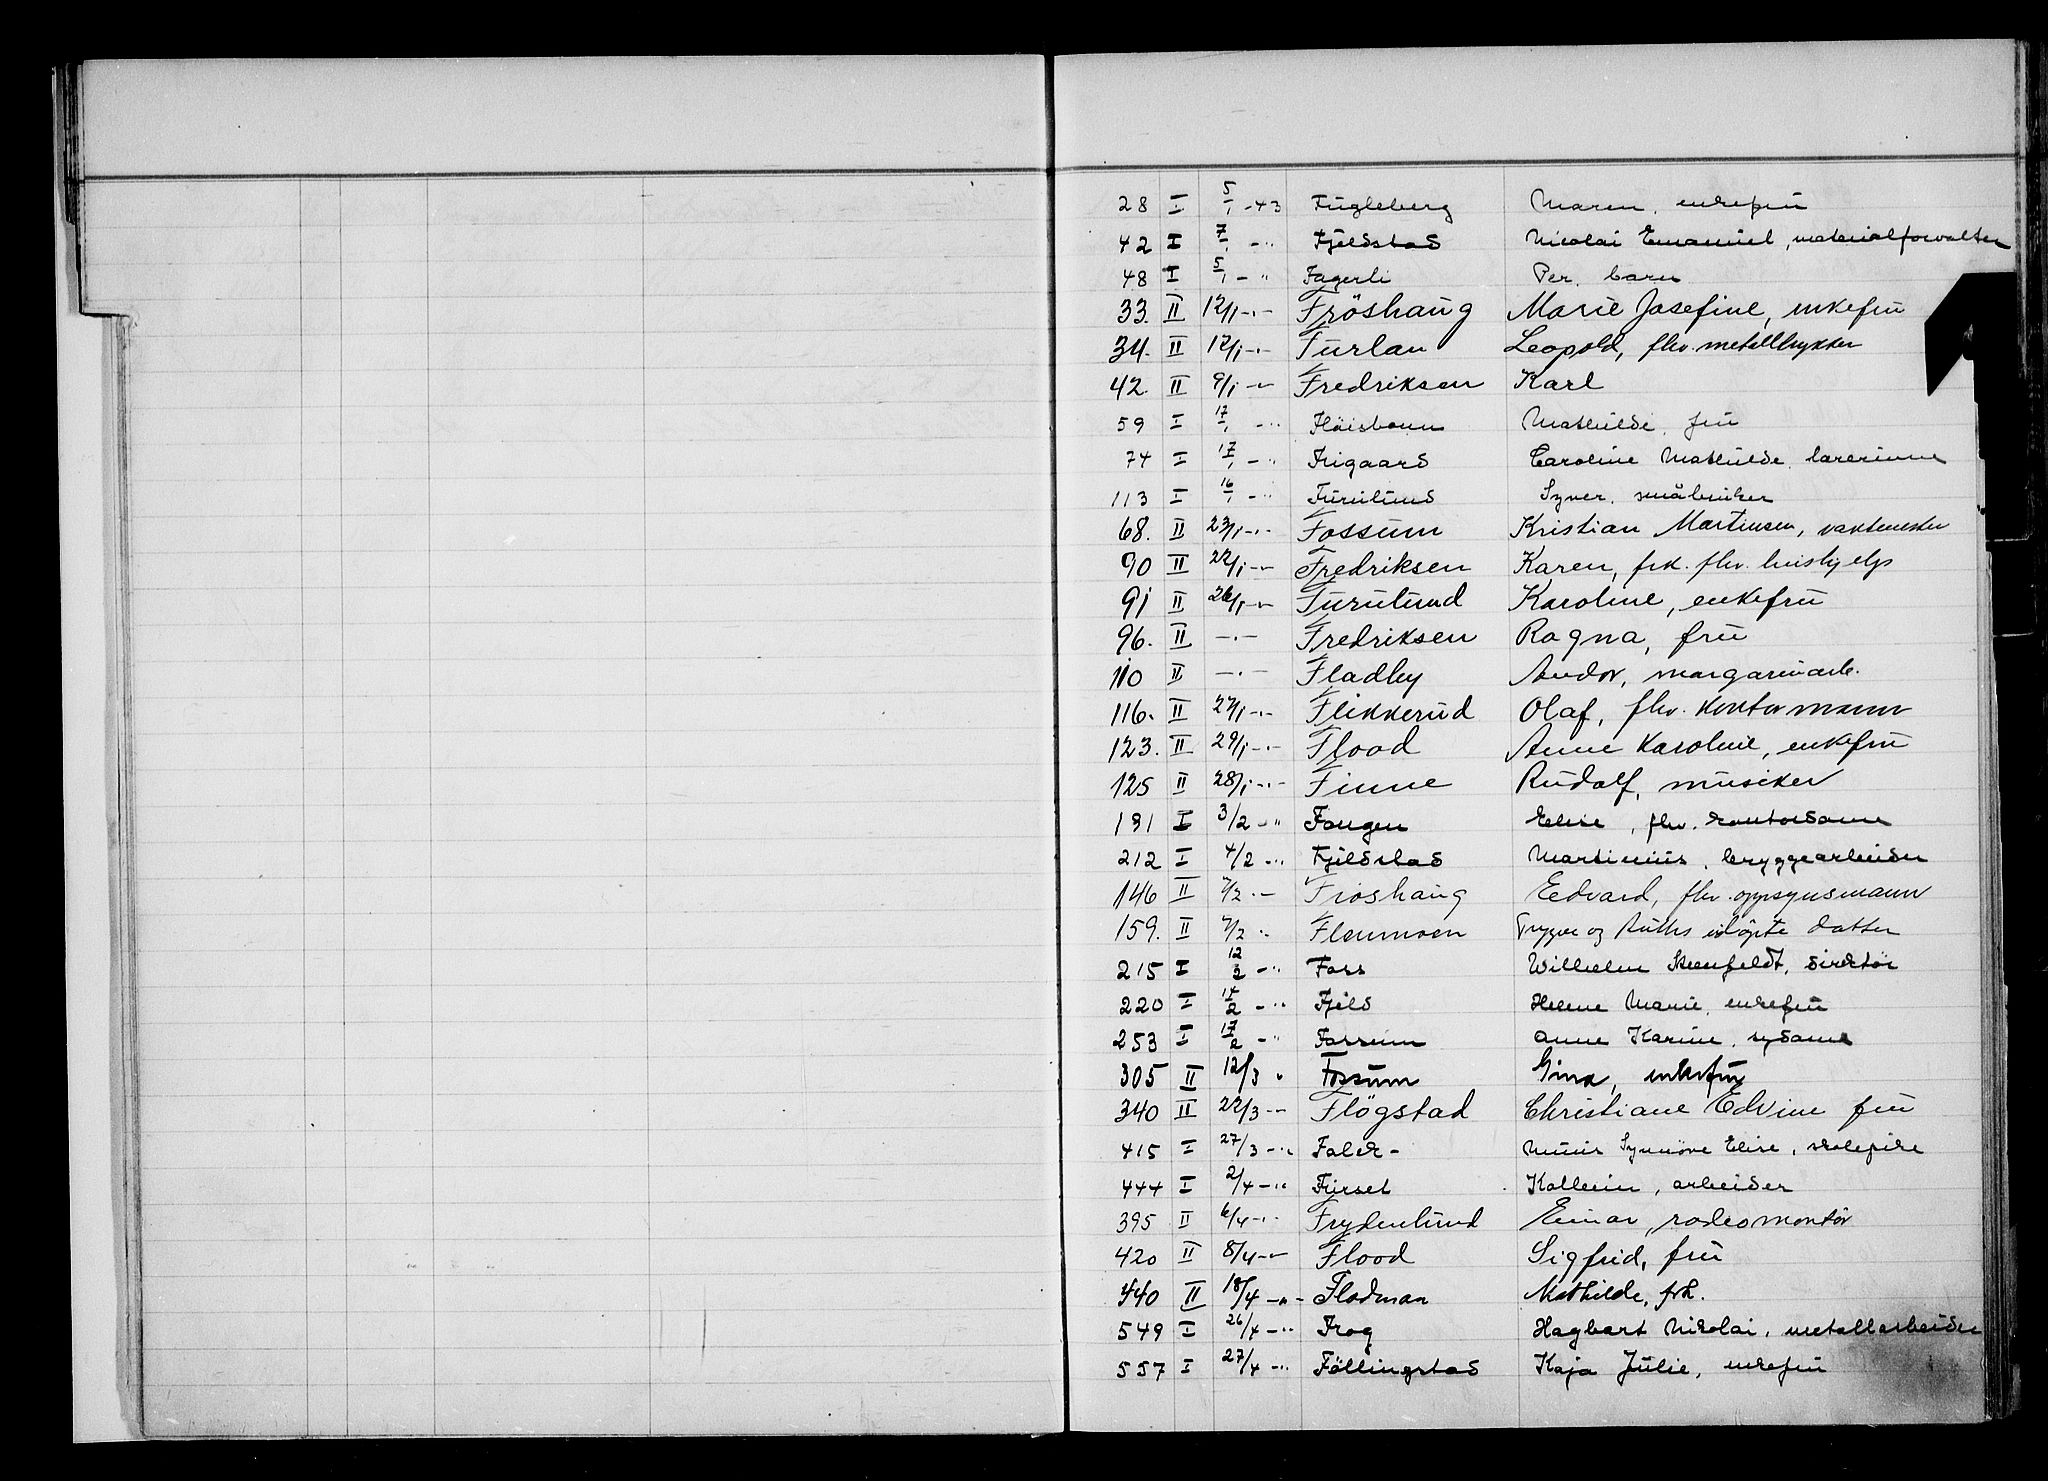 28 I 5/1 -43 Fugleberg Maren, enkefru
42 I 7/1 - " Fjeldstad Nicolai Emanuel, materialforvalter
48 I 5/1 - " Fagerli Per, barn
33. II 12/1 -"- Fröshaug Marie Josefine, enkefru
34. II 12/1 -"- Furlan Leopold, fhv. metalltrykker
42. II 9/1 -"- Fredriksen Karl
59 I 17/1 - " Fläisbonn Mathilde, fru
74 I 17/1 - " Frigaard Caroline Mathilde, lærerinne
113 I 16/1 - " Furulund Syver, småbruker
68. II 23/1 -"- Fossum Kristian Martinsen, vaktmester
90 II 22/1 -"- Fredriksen Karen, frk. fhv. hushjelp
91 II 26/1 -"- Furulund Karoline, enkefru
96. II -"- Fredriksen Ragna, fru
110 II -"- Fladby Andor, margarinarb.
116. II 27/1 -"- Flikkerud Olaf, fhv. kontormann
123. II 29/1 -"- Flood Anne Karoline, enkefru
125 II 28/1 -"- Finne Rudolf, musiker
191 I 3/2 - " Fangen Elise, fhv. kontordame
212 I 4/2 - " Fjeldstad Martinius, bryggearbeider
146 II 7/2 "- Froshaug Edvard, fhv. oppsynsmann
159. II 7/2 " Flenmoen Trygve og Ruths udöpte datter
215 I 12/2 - " Foss Wilhelm Steenfeldt, direktör
220 I 14/2 - " Fjeld Helene Marie, enkefru
253 I 17/2 - " Fossum Anne Karine, sydame
305 II 12/3 " Fossum Gina, enkefru
340 II 22/3 -"- Flögstad Christiane Edvine fru
415 I 27/3 - " Falck - Synnöve Elise, skolepike
444 I 2/4 - " Furset Kolbein, arbeider
395 II 6/4 -"- Frydenlund Einar, radiomontör
420 II 8/4 -"- Flood Sigfrid, fru
440 II 18/4 -"- Flodman Mathilde, frk.
549 I 26/4 - " Frog Hagbart Nikolai, metallarbeider
557 I 27/4 - " Föllingstad Kaja Julie, enkefru